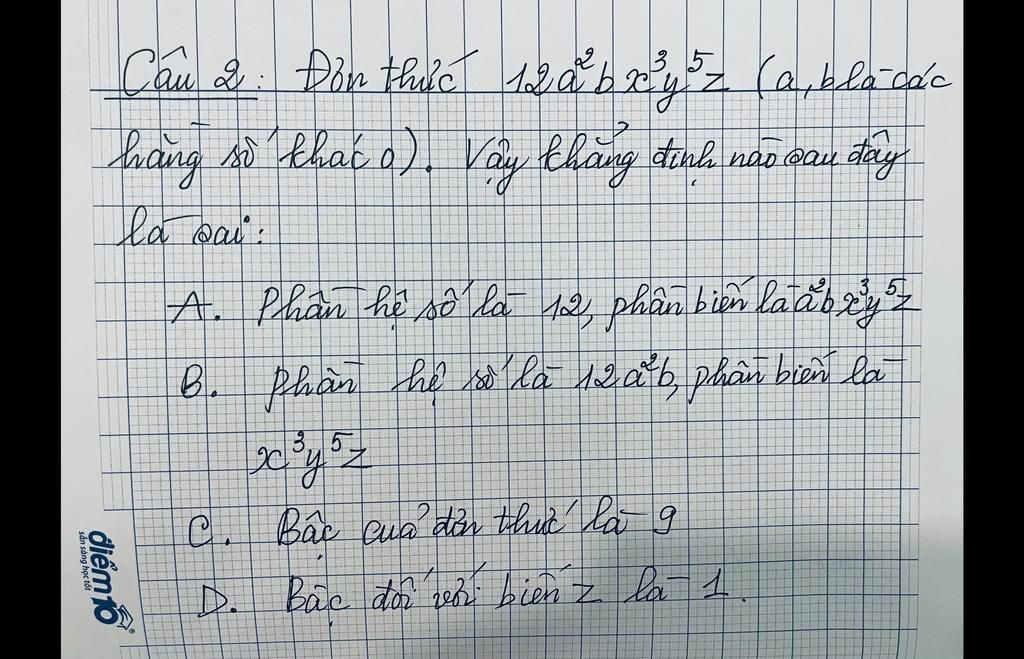 Câu 2: Đơn thức 12a²bx³y⁵z (a, b là các
hằng số khác 0). Vậy khẳng định nào sau đây
là sai:
A. Phần hệ số là 12, phần biến là a²bx³y⁵z
B. Phần hệ số là 12a²b, phần biến là
x³y⁵z
C. Bậc của đơn thức là 9
D. Bậc đối với biến z là 1.
điểm10
sẵn sàng học tốt